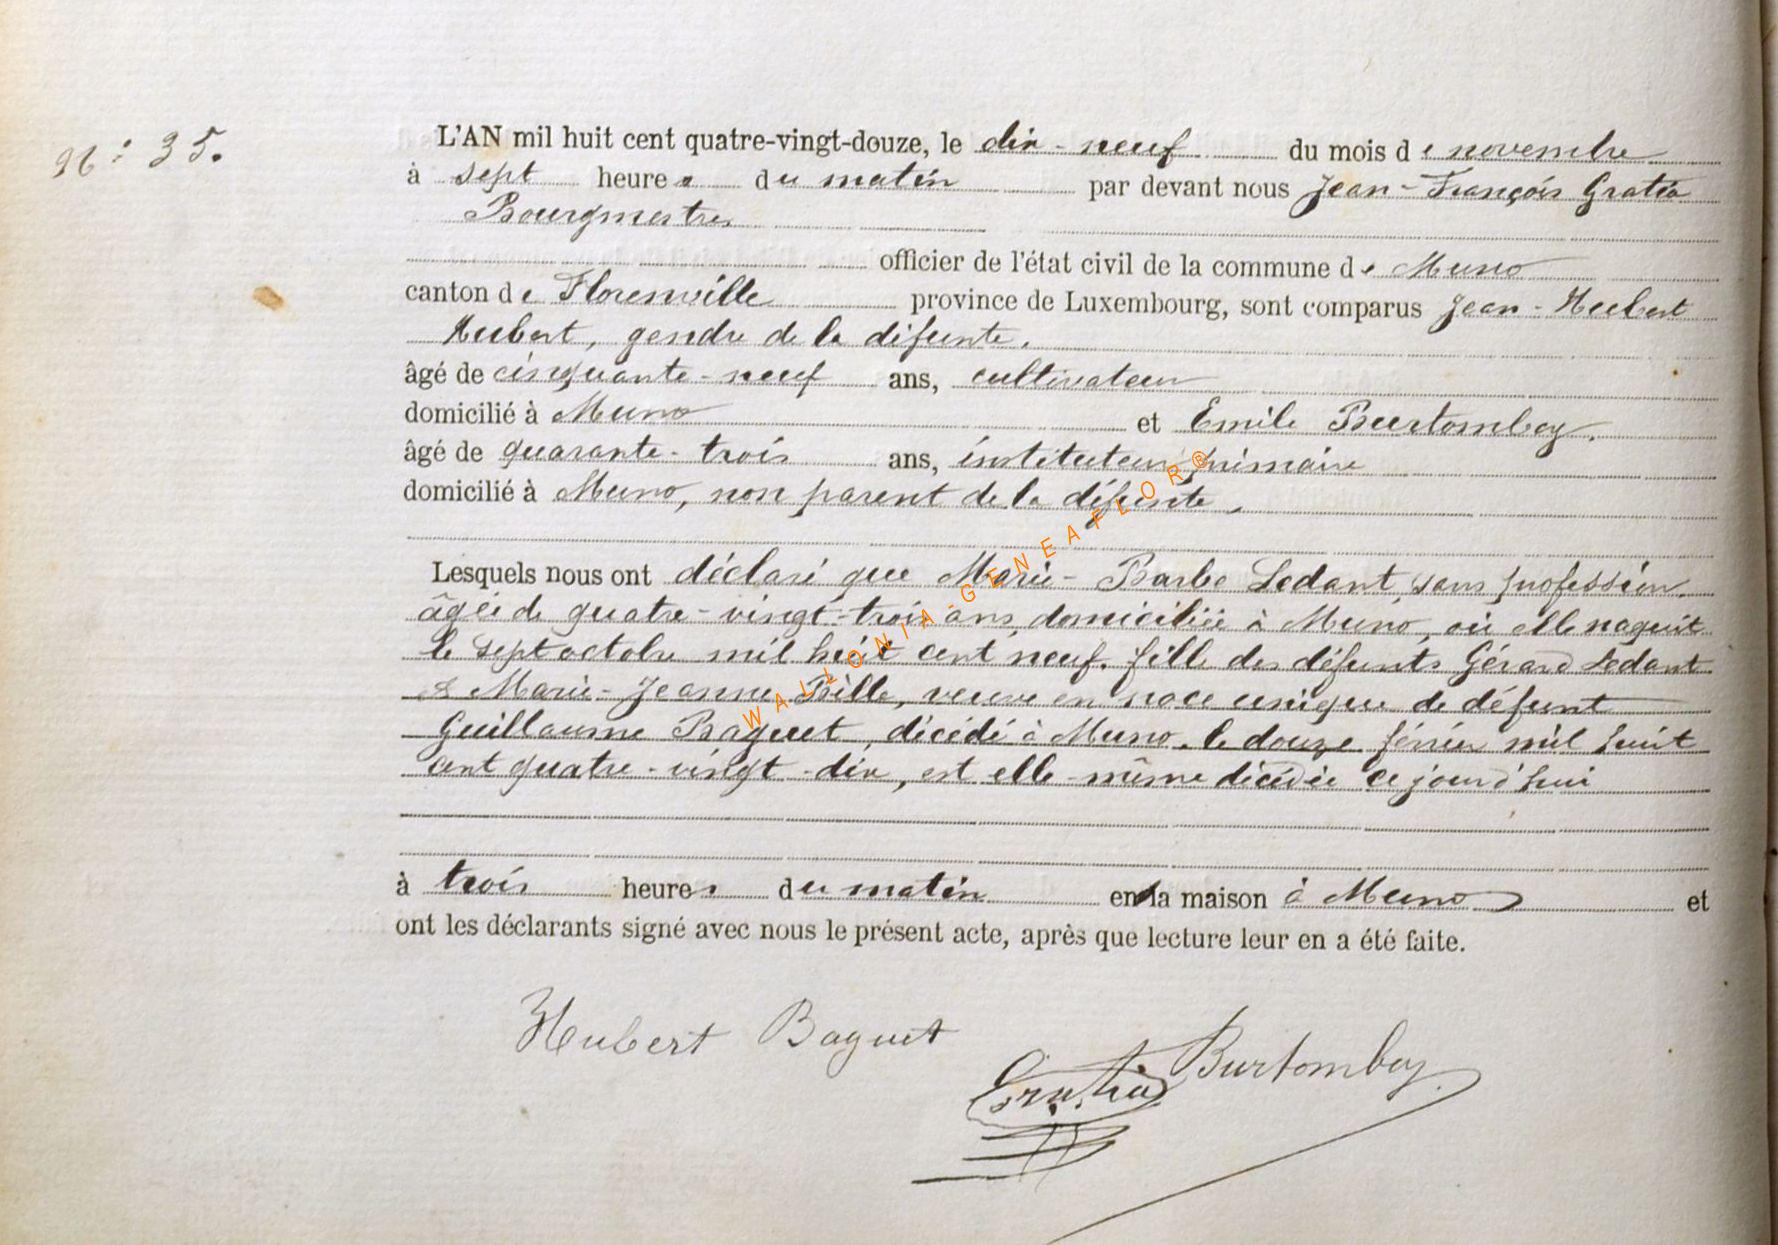 N° 35.
L'AN mil huit cent quatre-vingt-douze, le dix-neuf du mois de novembre
à sept heures du matin par devant nous Jean-François Gratia
Bourgmestre
officier de l'état civil de la commune de Muno
canton de Florenville province de Luxembourg, sont comparus Jean-Hubert
Hubert, gendre de la défunte.
âgé de cinquante-neuf ans, cultivateur
domicilié à Muno et Emile Burtomboy.
âgé de quarante-trois ans, instituteur primaire
domicilié à Muno, non parent de la défunte,
Lesquels nous ont déclaré que Marie-Barbe Ledant, sans profession,
âgée de quatre-vingt-trois ans, domiciliée à Muno, où elle naquit
le sept octobre mil huit cent neuf, fille des défunts Gérard Ledant
& Marie-Jeanne Bille, veuve en noce unique de défunt
Guillaume Baguet, décédé à Muno, le douze février mil huit
cent quatre-vingt-dix, est elle-même décédée ce jourd'hui
à trois heures du matin en la maison à Muno et
ont les déclarants signé avec nous le présent acte, après que lecture leur en a été faite.
Hubert Baguet
Burtomboy
Gratia
WALLONIA-GENEAFLOR®